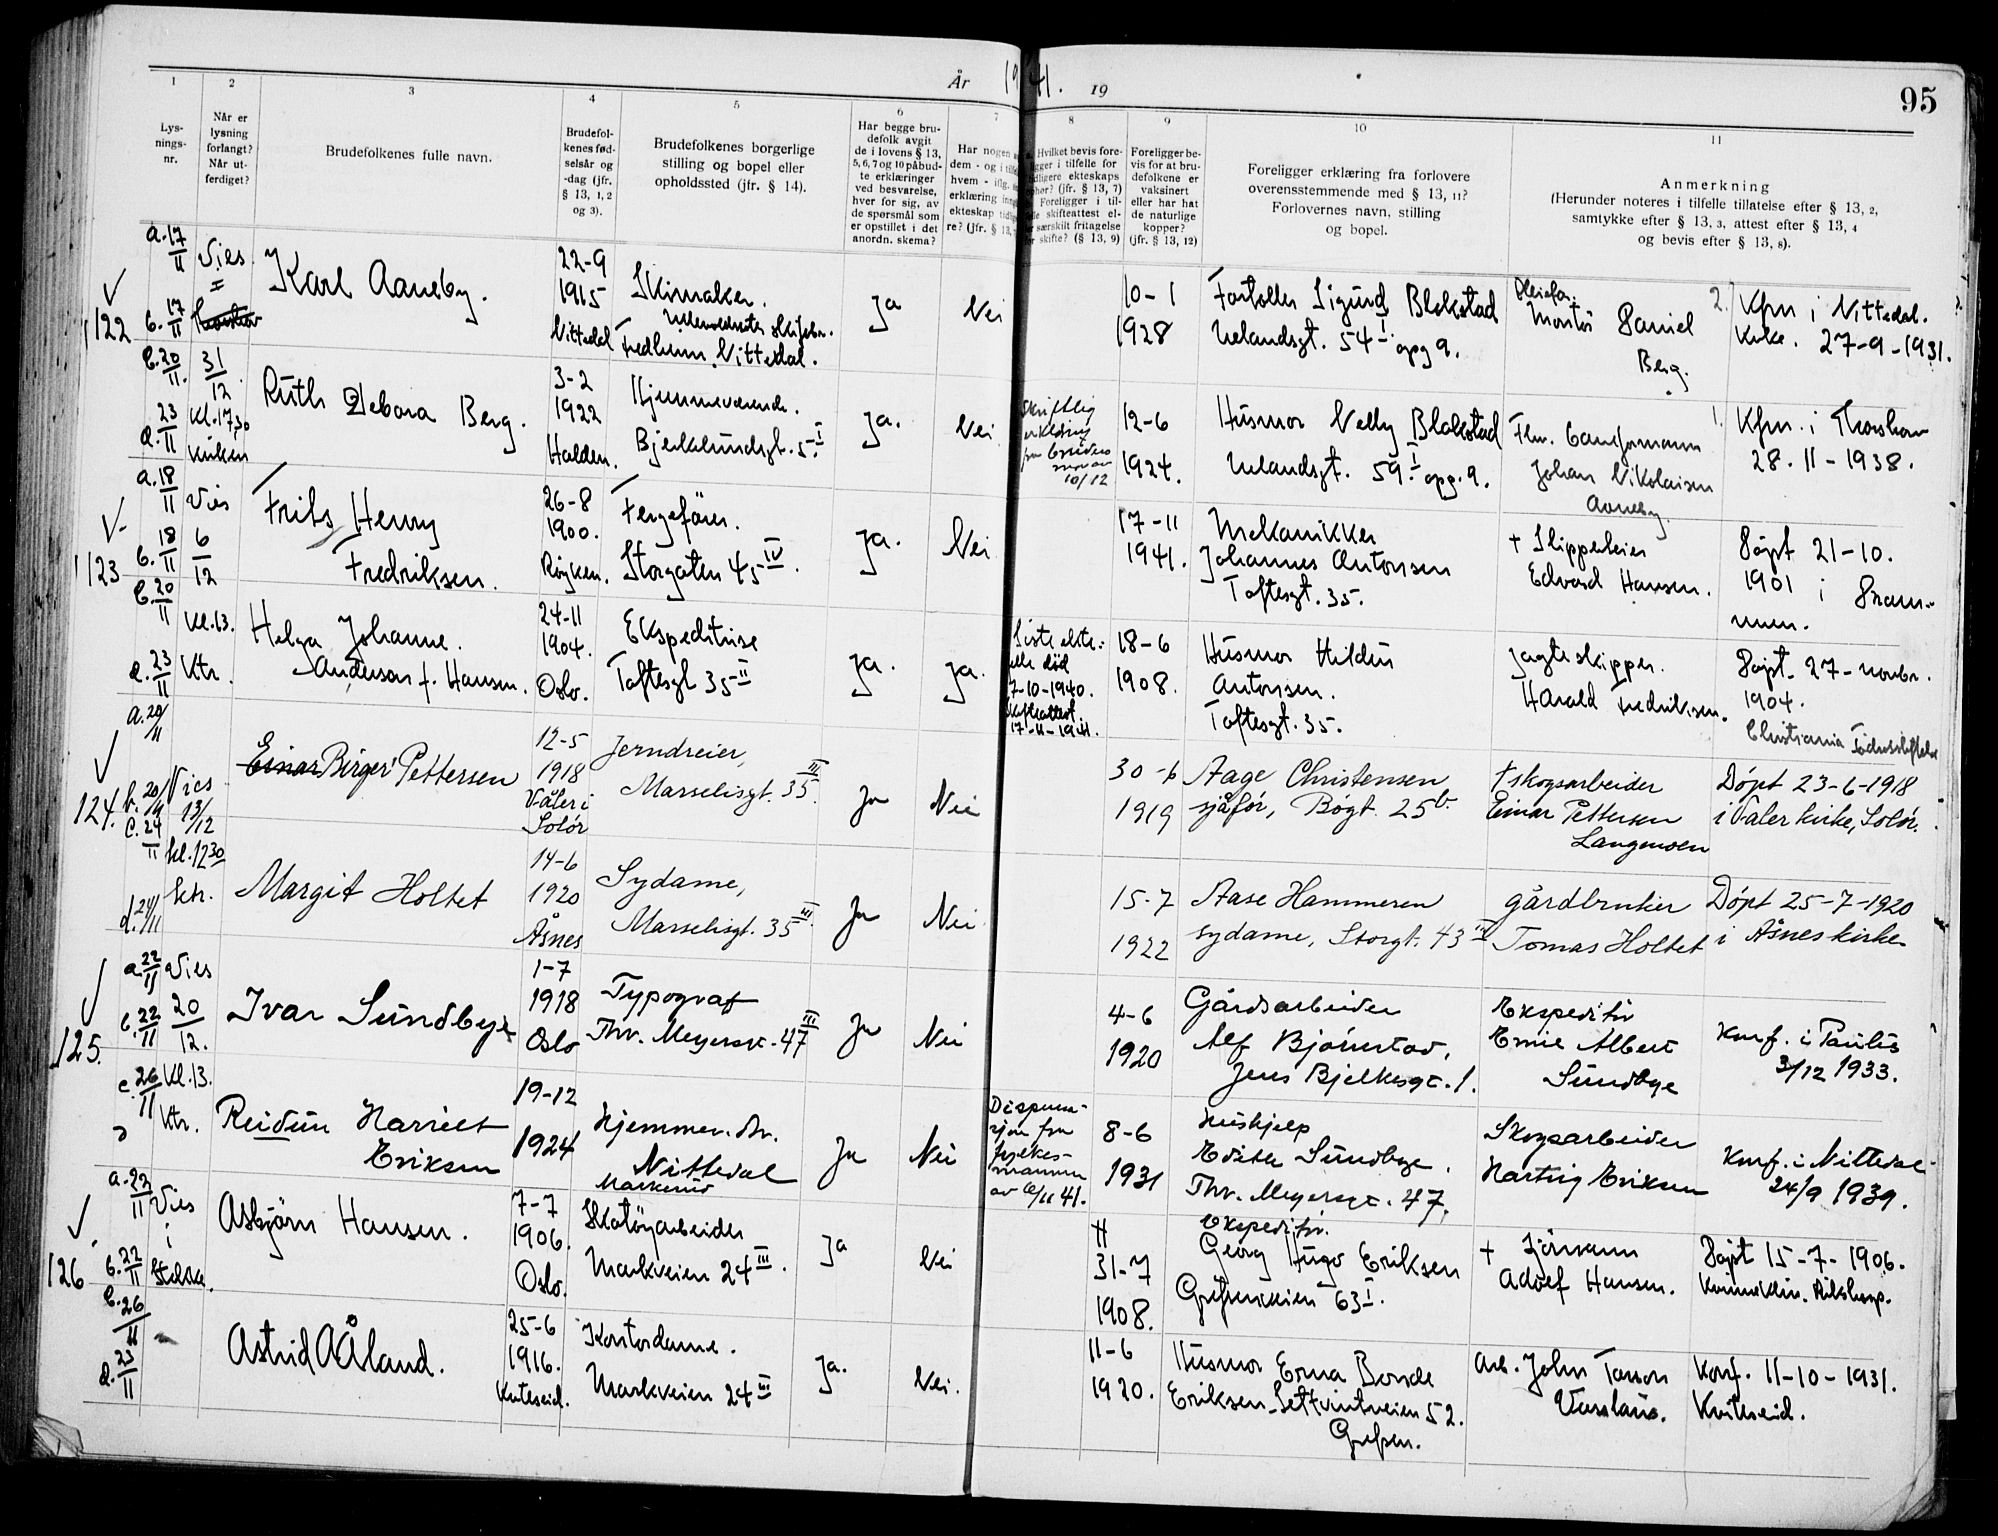 År 1941. 19
95
1
Lys-
nings-
nr.
2
Når er
lysning
forlangt?
Når ut-
ferdiget?
3
Brudefolkenes fulle navn.
4
Brudefol-
kenes fød-
selsår og
-dag (jfr.
§ 13, 1, 2
og 3).
5
Brudefolkenes borgerlige
stilling og bopel eller
opholdssted (jfr. § 14).
6
Har begge bru-
defolk avgit
de i lovens § 13,
5, 6, 7 og 10 påbud-
te erklæringer
ved besvarelse,
hver for sig, av
de spørsmål som
er opstillet i det
anordn. skema?
7
Har nogen
dem - og i
hvem - iflg.
erklæring
ekteskap
re? (jfr. § 13,
8
Hvilket bevis fore-
ligger i tilfelle for
tidligere ekteskaps
ophør? (jfr. § 13, 7)
Foreligger i til-
felle skifteattest el-
særskilt fritagelse
for skifte? (§ 13, 9)
9
Foreligger be-
vis for at bru-
defolkene er
vaksinert
eller har hat
de naturlige
kopper?
(jfr. § 13, 12)
10
Foreligger erklæring fra forlovere
overensstemmende med § 13, 11?
Forlovernes navn, stilling
og bopel.
11
Anmerkning
(Herunder noteres i tilfelle tillatelse efter § 13, 2,
samtykke efter § 13, 3, attest efter § 13, 4
og bevis efter § 13, 8).
122
a. 17/11
b. 17/11
c. 20/11.
d. 23/11
Vies
31/12
Kl. 17,30
Kirken
Karl Aaneby.
22-9
1915
Nittedal
Skimaker.
Fredheim Nittedal.
Ja
Nei
10-1
1928
Fortoller Sigurd Blokstad
Uelandsgt. 54 I opg 9.
Montør Daniel
Berg.
2.
Kfm i Nittedal.
Kirke. 27-9-1931.
Ruth Debora Berg.
3-2
1922
Halden.
Hjemmeværende.
Bjerkelundsgt. 5 I.
Ja.
Nei
Skriftlig
erklæring
fra brudens
mor av
10/12
12-6
1924.
Husmor Nelly Blokstad
Uelandsgt. 59 I opg. 9.
Johan Nikolaisen
Aaneby.
1.
Kfm. i Thorshov
28. 11-1938.
123
a. 18/11
b. 18/11
c. 20/11
d. 23/11
Vies
6/12
Kl. 13.
Ktr.
Frits Henry
Fredriksen.
26-8
1900.
Røyken.
Fergefører.
Storgaten 45 IV.
Ja.
Nei
17-11
1941.
Mekanikker
Johannes Antonsen
Toftesgt. 35.
+ Slippeeier
Edvard Hansen.
Døpt 21-10.
1901 i Dram-
men.
Helga Johanne.
Anderson f. Hansen.
24-11
1904.
Oslo.
Ekspeditrise
Toftesgt 35 II
Ja.
Ja.
Siste ekte-
felle død
7-10-1940.
Skifteattest
17-11-1941.
18-6
1908.
Husmor Hildur
Antonsen.
Toftesgt. 35.
Jagteskipper.
Harald Fredriksen.
Døpt 27-novbr.
1904.
Christiania Fødselsstiftelse
124.
a. 20/11
b. 20/11
c. 24/11
d. 24/11
Vies
13/12
kl. 12 30
ktr.
Einar Birger Pettersen
12-5
1918
Våler i
Solør
Jerndreier,
Marselisgt. 35 III.
Ja
Nei
30-6
1919
Aage Christensen
sjåfør, Bøgt. 25 b.
+ skogsarbeider
Einar Pettersen
Langmoen
Døpt 23-6-1918
i Våler kirke, Solør.
Margit Holtet
14-6
1920
Åsnes
Sydame,
Marselisgt. 35 III.
Ja
Nei
15-7
1922
Aase Hammeren
sydame, Storgt. 43 IV
gårdbruker
Tomas Holtet
Døpt 25-7-1920
i Åsnes kirke
125.
a. 22/11
b. 22/11
c. 26/11
Vies
20/12.
Kl. 13.
Ktr.
Ivar Sundbye
1-7
1918
Oslo
Typograf
Thv. Meyersgt. 47 III
Ja
Nei
4-6
1920
Gårdsarbeider
Alf Bjørnstad,
Jens Bjelkesgt. 1.
Ekspeditør
Emil Albert
Sundbye
Konf. i Paulus
3/12 1933.
Reidun Harriet
Eriksen
19-12
1924
Hjemmev. dtr.
Nittedal
Markerud
Ja
Nei
Dispensa-
sjon fra
fylkes-
mannen
av 6/11 41.
8-6
1931
Hushjelp
Edith Sundbye.
Thv. Meyersgt. 47.
Skogsarbeider
Hartvig Eriksen
Konf. i Nittedal
24/9 1939.
126
a. 22/11
b. 22/11
c. 26/11
d. 23/11
Vies
i
Asbjørn Hansen.
7-7
1906.
Oslo.
Skotøyarbeider
Markveien 24 III.
Ja
Nei
31-7
1908.
Ekspeditør.
Georg Hugo Eriksen
Grefsenveien 63 I.
+ Sjømann
Adolf Hansen.
Døpt 15-7-1906.
Kvinneklin. Rikshosp.
Astrid Aåland.
25-6
1916.
Kviteseid.
Kontordame.
Markveien 24 III
Ja.
Nei.
11-6
1920.
Husmor Erna Bonde
Eriksen 52.
Grefsen.
Arb. John
Konf. 11-10-1931.
Kviteseid.